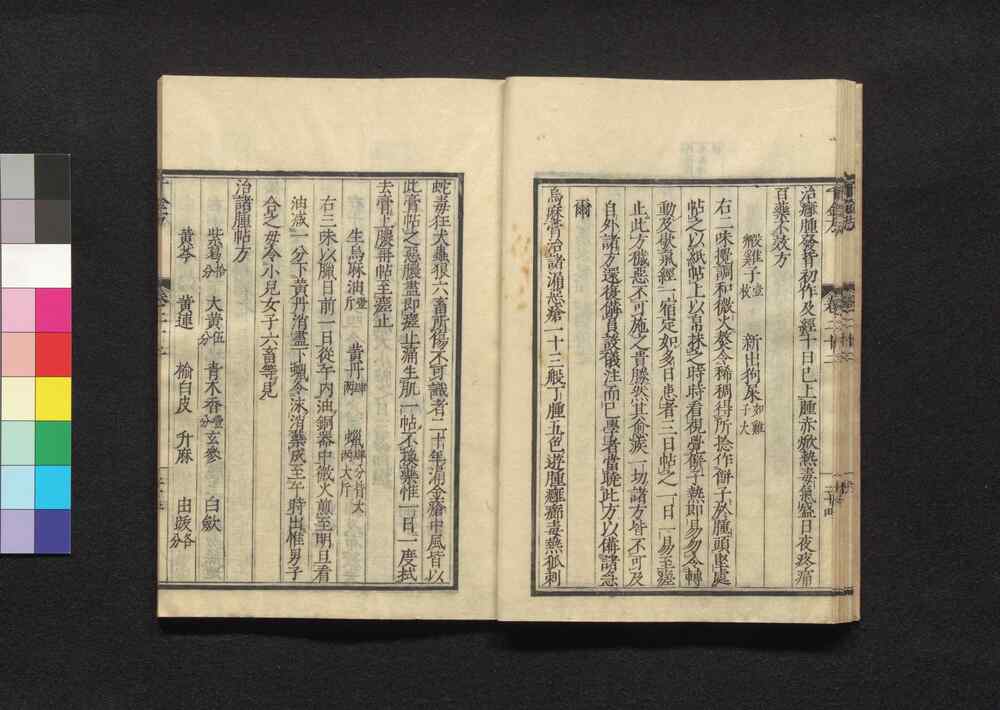 治癰腫發背初作及經十日已上腫赤焮熱毒氣盛日夜疼痛
百藥不效方
鷇雞子壹枚 新出狗屎如雞子大
右二味攪調和微火熬令稀稠得所捻作餅子於腫頭堅處
帖之以紙帖上以帛抹之時時看視覺餅子熱即易勿令轉
動及歇氣經一宿定如多日患者三日帖之一日一易至瘥
止此方穢惡不可施之貴勝然其愈疾一切諸方皆不可及
自外諸方還復備員設儀注而已學者當曉此方以備諸急
爾
烏麻膏治諸漏惡瘡一十三般丁腫五色遊腫癰癤毒熱狐刺
蛇毒狂犬蟲狼六畜所傷不可識者二十年漏金瘡中風皆以
此膏帖之惡膿盡即瘥止痛生肌一帖不換藥惟一日一度拭
去膏上膿再帖至瘥止
生烏麻油壹斤 黃丹肆兩 蠟肆分皆大兩大斤
右三味以臘日前一日從午內油銅器中微火煎至明旦看
油減一分下黃丹消盡下蠟令沫消藥成至午時出惟男子
合之毋令小兒女子六畜等見
治諸腫帖方
紫葛拾分 大黃伍分 青木香壹分 玄參 白歛
黃芩 黃連 楡白皮 升麻 由跋各分